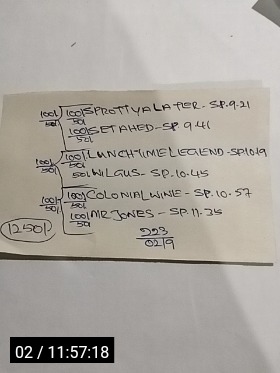 100/ 100/ SPROTTYALATER - SP. 9.21
50/ 50/
100/ SETAHED - SP. 9.41
50/
100/ 100/ LUNCHTIME LEGEND - SP10.19
50/ 50/
50/ WILGUS - SP. 10.45
100/ 100/ COLONIAL WINE - SP. 10.57
50/ 50/
100/ MR JONES - SP. 11.35
50/
1250/
223
02/9
02 / 11:57:18